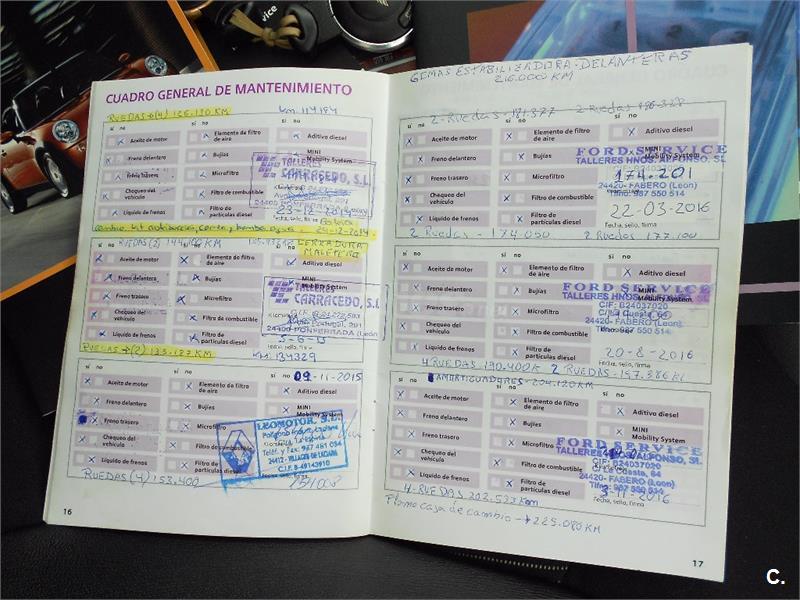 CUADRO GENERAL DE MANTENIMIENTO
RUEDAS → (4) 126.130 KM
Km. 114184
sí no sí no sí no
Aceite de motor Elemento de filtro de aire Aditivo diesel
Freno delantero Bujías MINI Mobility System
Freno trasero Microfiltro
Chequeo del vehículo Filtro de combustible
Líquido de frenos Filtro de partículas diesel
TALLERES
CARRACEDO, S.L.
23-12-2014
Fecha, sello, firma
23-12-2014
RUEDAS (2) 144.116 KM
CERRADURA
MALETERO
sí no
Aceite de motor Elemento de filtro de aire Aditivo diesel
Freno delantero Bujías MINI Mobility System
Freno trasero Microfiltro
Chequeo del vehículo Filtro de combustible
Líquido de frenos Filtro de partículas diesel
TALLERES
CARRACEDO, S.L.
24400 PONFERRADA (León)
5-6-15
RUEDAS → (2) 133.127 KM
KM 134329
sí no sí no
09-11-2015
Aceite de motor Elemento de filtro de aire Aditivo diesel
Freno delantero Bujías MINI Mobility System
Freno trasero Microfiltro
Chequeo del vehículo Filtro de combustible
Líquido de frenos Filtro de partículas diesel
LEOMOTOR, S.L.
Teléf. y Fax: 987 481 094
24412 - VILLAGER DE LACIANA
C.I.F. B-49143910
RUEDAS (4) 153.400
16
GEMAS ESTABILIZADORA-DELANTERAS
216.000 KM
2-Ruedas-181.377
sí no sí no sí no
Aceite de motor Elemento de filtro de aire Aditivo diesel
Freno delantero Bujías MINI Mobility System
Freno trasero Microfiltro
Chequeo del vehículo Filtro de combustible
Líquido de frenos Filtro de partículas diesel
FORD SERVICE
TALLERES HNOS. ALFONSO, SL.
174.201
24420- FABERO (León)
Tlfno: 987 550 514
22-03-2016
Fecha, sello, firma
2 Ruedas - 174.050 2 Ruedas 177.100
sí no sí no sí no
Aceite de motor Elemento de filtro de aire Aditivo diesel
Freno delantero Bujías MINI Mobility System
Freno trasero Microfiltro
Chequeo del vehículo Filtro de combustible
Líquido de frenos Filtro de partículas diesel
FORD SERVICE
CIF: B24037020
C/ La Cuesta, 64
24420- FABERO (León)
Tlfno: 987 550 514
20-8-2016
Fecha, sello, firma
4 RUEDAS 190.400 K 2 RUEDAS - 197.386 KL
AMORTIGUADORES - 204.120 KM
sí no sí no sí no
Aceite de motor Elemento de filtro de aire Aditivo diesel
Freno delantero Bujías MINI Mobility System
Freno trasero Microfiltro
Chequeo del vehículo Filtro de combustible
Líquido de frenos Filtro de partículas diesel
FORD SERVICE
CIF: B24037020
24420- FABERO (León)
Tlfno: 987 550 514
3-11-2016
Fecha, sello, firma
4-RUEDAS 202.533 Km
caja de cambio → 225.080 KM
17
C.